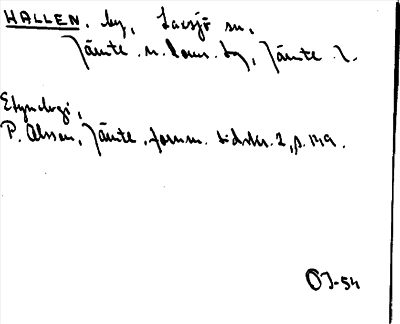 HALLEN, by, Laesjö sn,
Jämte. n. doms. by, Jämte. l.
Etymologi,
P. Olsson, Jämte. fornm. tidskr. 2, s. 149.
OJ-54